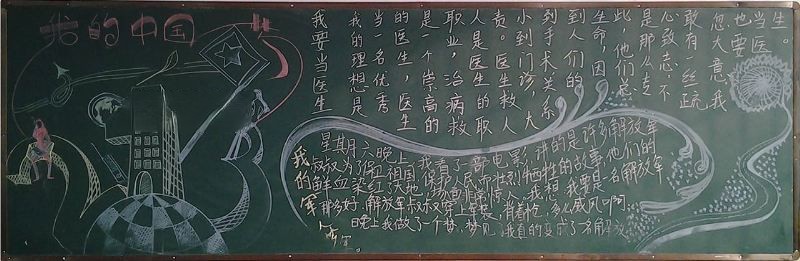 我的中国
我要当医生
我的理想是
当一名优秀
的医生，医生
是一个崇高的
职业，治病救
人是医生的职
责。医生救人
小到门诊，大
到手术关系
到人们的
生命，因
此，他们总
是那么专
心致志，不
敢有一丝疏
忽大意，我
也要
当医
生。
我的军
星期六晚上，我看了一部电影，讲的是许多解放军
叔叔为了保卫祖国，保护人民而壮烈牺牲的故事，他们的
鲜血染红了大地，场面惊人，我想，我要是一名解放军
那多好，解放军叔叔穿上军装，肩着枪，多么威风啊
晚上我做了一个梦，梦见我真的变成了一名解放
军。